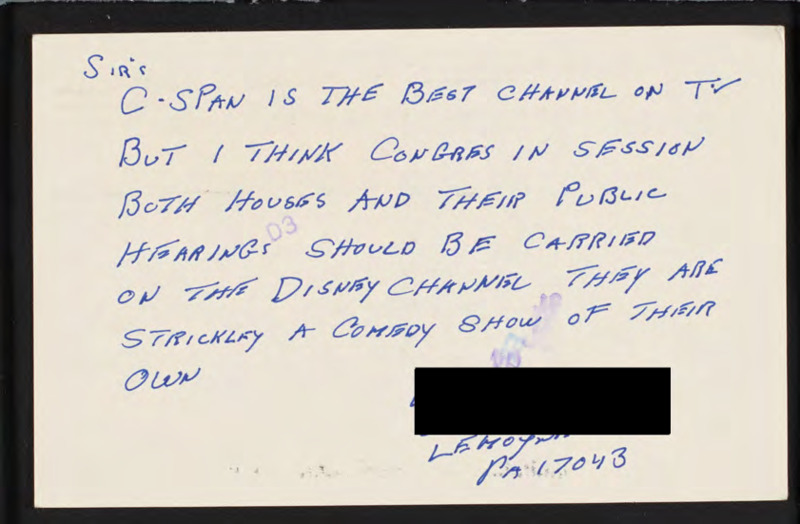 SIR'S
C-SPAN IS THE BEST CHANNEL ON TV
BUT I THINK CONGRES IN SESSION
BOTH HOUSES AND THEIR PUBLIC
HEARINGS SHOULD BE CARRIED
03
ON THE DISNEY CHANNEL THEY ARE
STRICKLEY A COMEDY SHOW OF THEIR
OWN
PA 17043